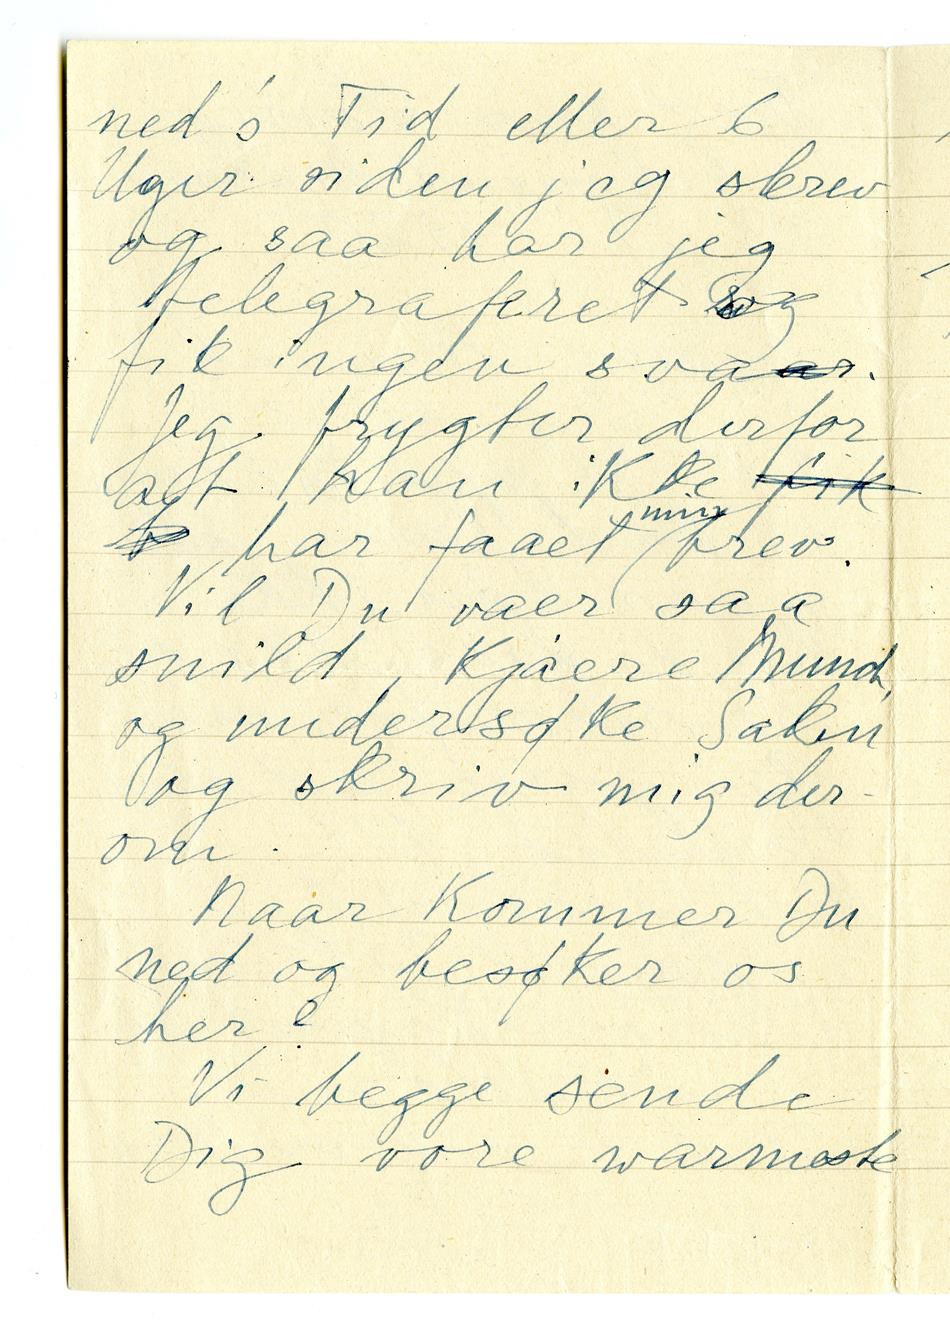 ned's Tid eller 6
Uger siden jeg skrev
og saa har jeg
telegraferet og
fik ingen svaar.
Jeg frygter derfor
at han ikke fik
har faaet min brev.
Vil Du vaer saa
snild, Kjaere Munch,
og undersøke Saken
og skriv mig der-
om.
Naar Kommer Du
ned og besøker os
her?
Vi begge sende
Dig vore warmeste